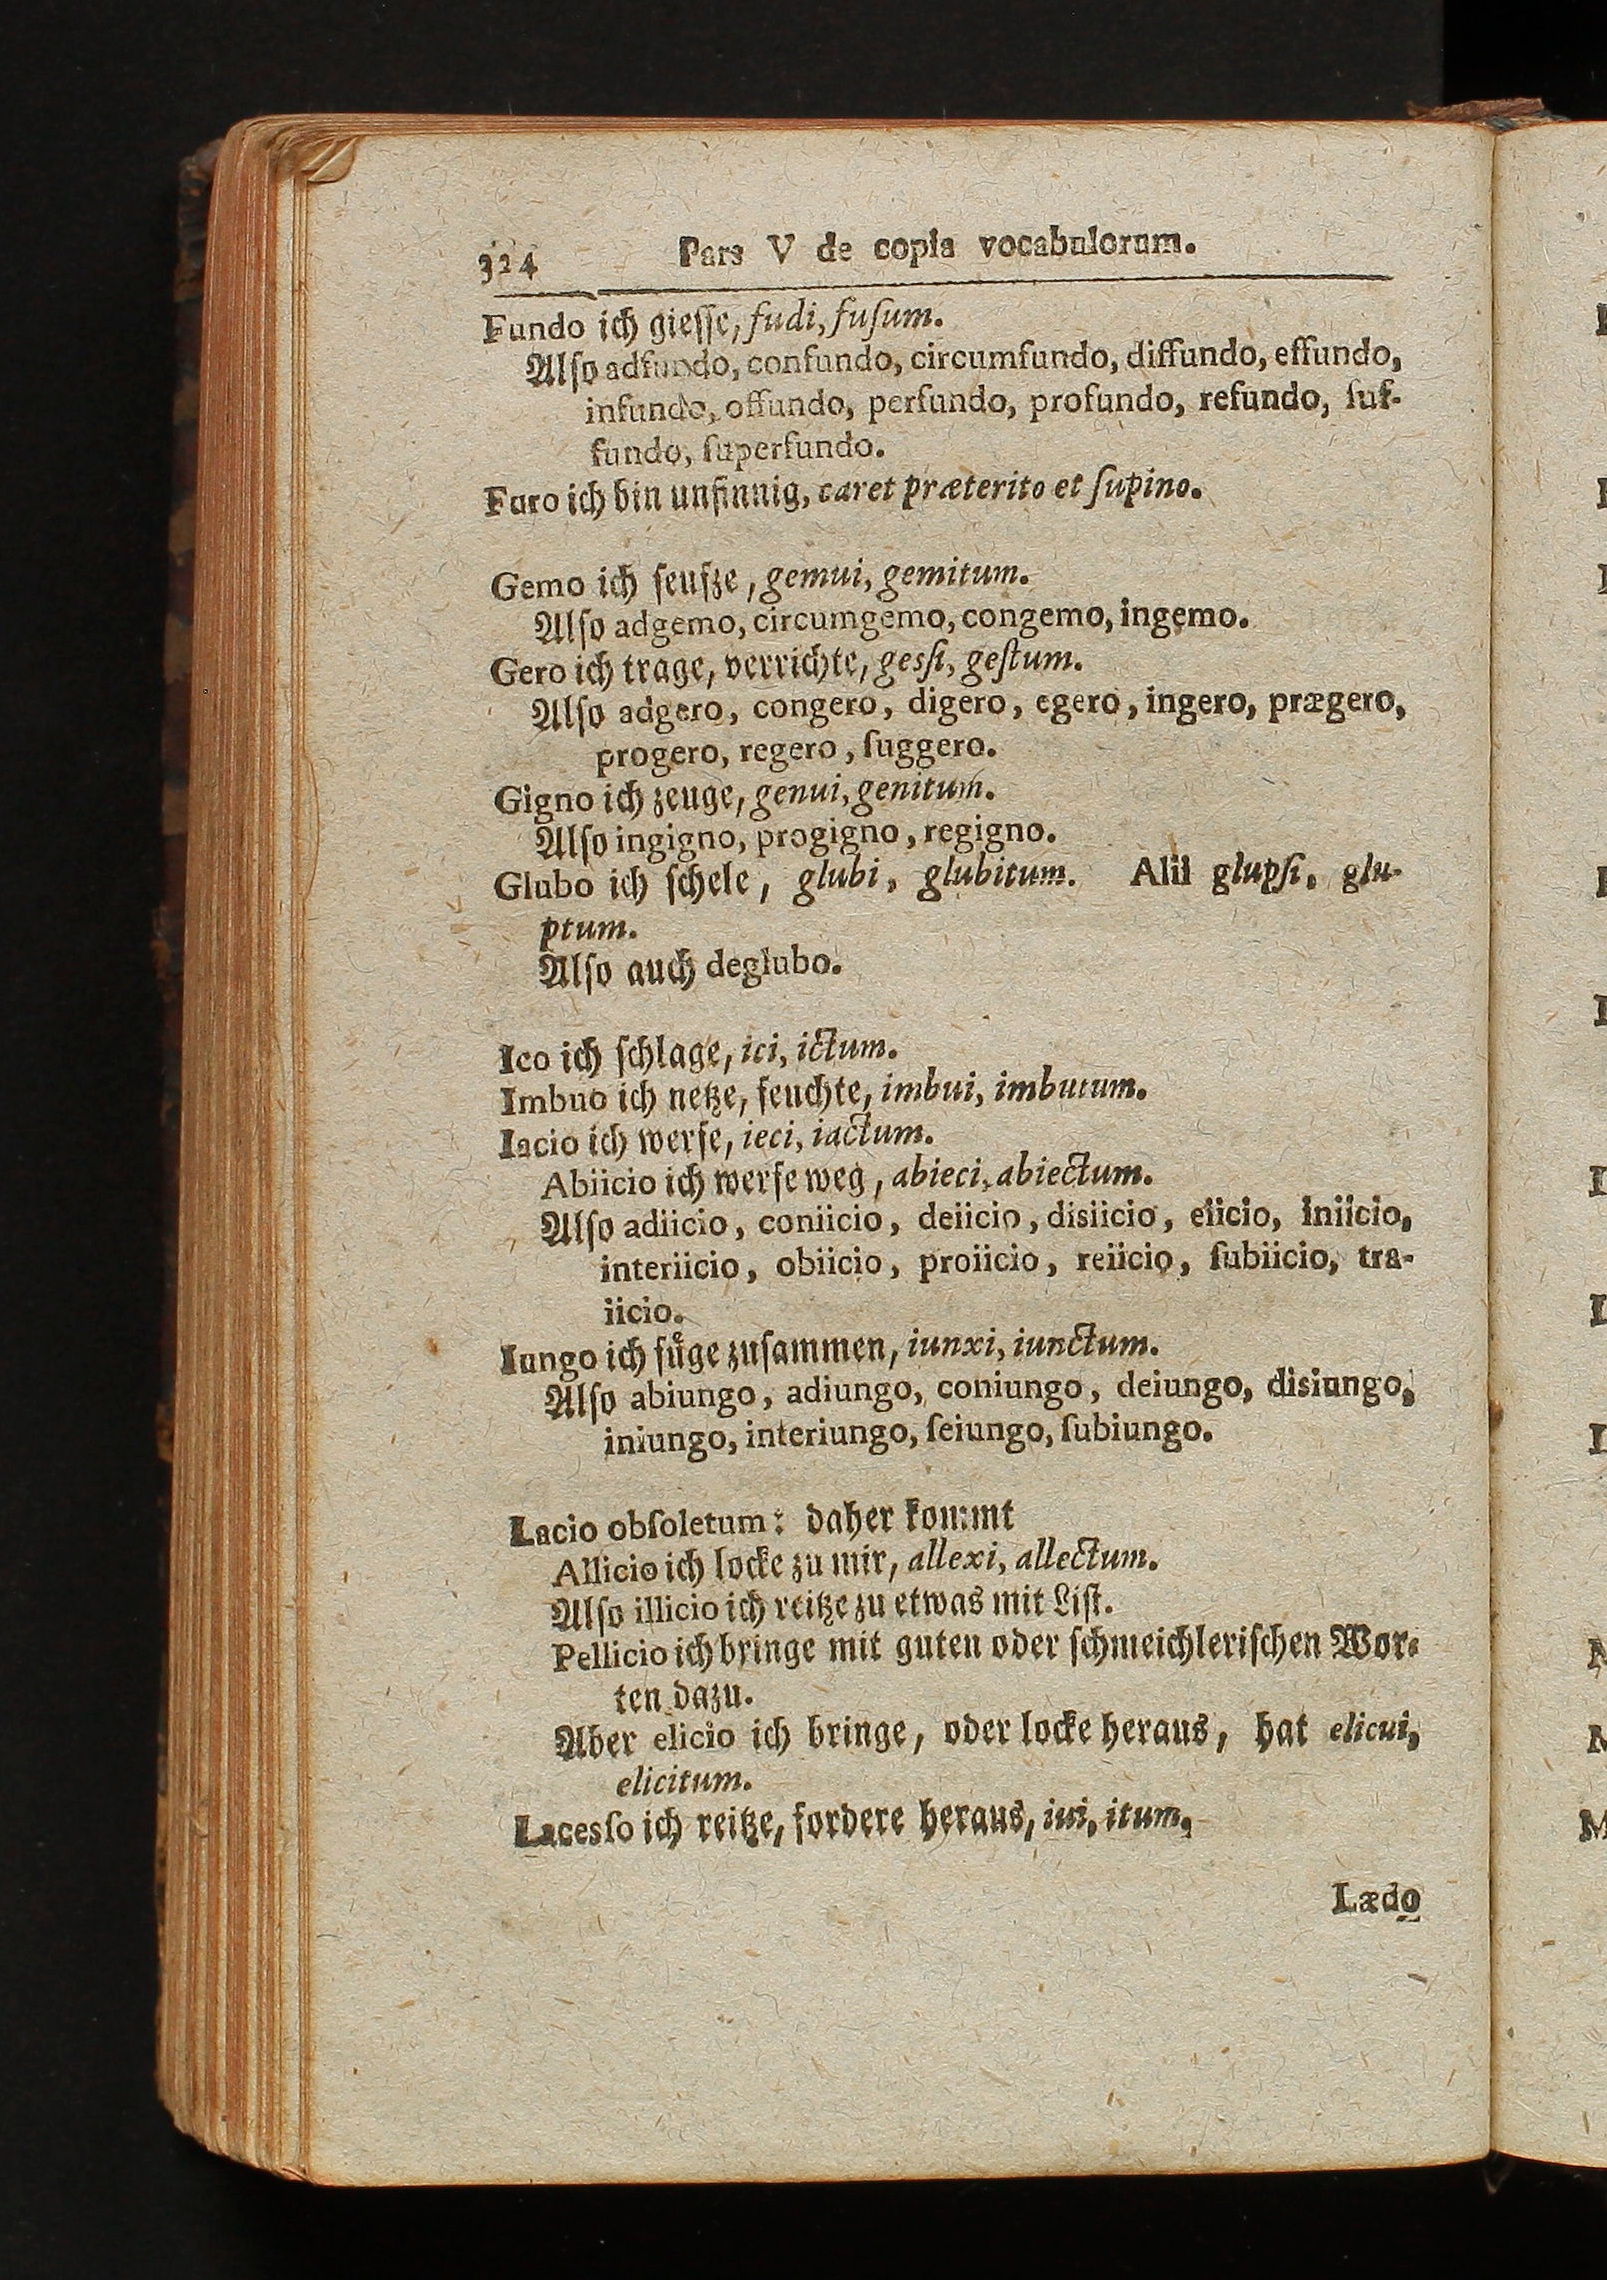 324 Pars V de copia vocabulorum.
Fundo ich giesse, fudi, fuſum.
Alſo adfundo, confundo, circumfundo, diffundo, effundo,
infundo, offundo, perfundo, profundo, refundo, ſuf-
fundo, ſuperfundo.
Furo ich bin unſinnig, caret præterito et ſupino.
Gemo ich ſeufze, gemui, gemitum.
Alſo adgemo, circumgemo, congemo, ingemo.
Gero ich trage, verrichte, gesſi, geſtum.
Alſo adgero, congero, digero, egero, ingero, prægero,
progero, regero, ſuggero.
Gigno ich zeuge, genui, genitum.
Alſo ingigno, progigno, regigno.
Glubo ich ſchele, glubi, glubitum. Alii glupſi, glu-
ptum.
Alſo auch deglubo.
Ico ich ſchlage, ici, ictum.
Imbuo ich netze, feuchte, imbui, imbutum.
Iacio ich werfe, ieci, iactum.
Abiicio ich werfe weg, abieci, abiectum.
Alſo adiicio, coniicio, deiicio, disiicio, eiicio, iniicio,
interiicio, obiicio, proiicio, reiicio, ſubiicio, tra-
iicio.
Iungo ich fuͤge zuſammen, iunxi, iunctum.
Alſo abiungo, adiungo, coniungo, deiungo, disiungo,
iniungo, interiungo, ſeiungo, ſubiungo.
Lacio obſoletum: daher kommt
Allicio ich locke zu mir, allexi, allectum.
Alſo illicio ich reitze zu etwas mit Liſt.
Pellicio ich bringe mit guten oder ſchmeichleriſchen Wor-
ten dazu.
Aber elicio ich bringe, oder locke heraus, hat elicui,
elicitum.
Lacesſo ich reitze, fordere heraus, iui, itum.
Lædo